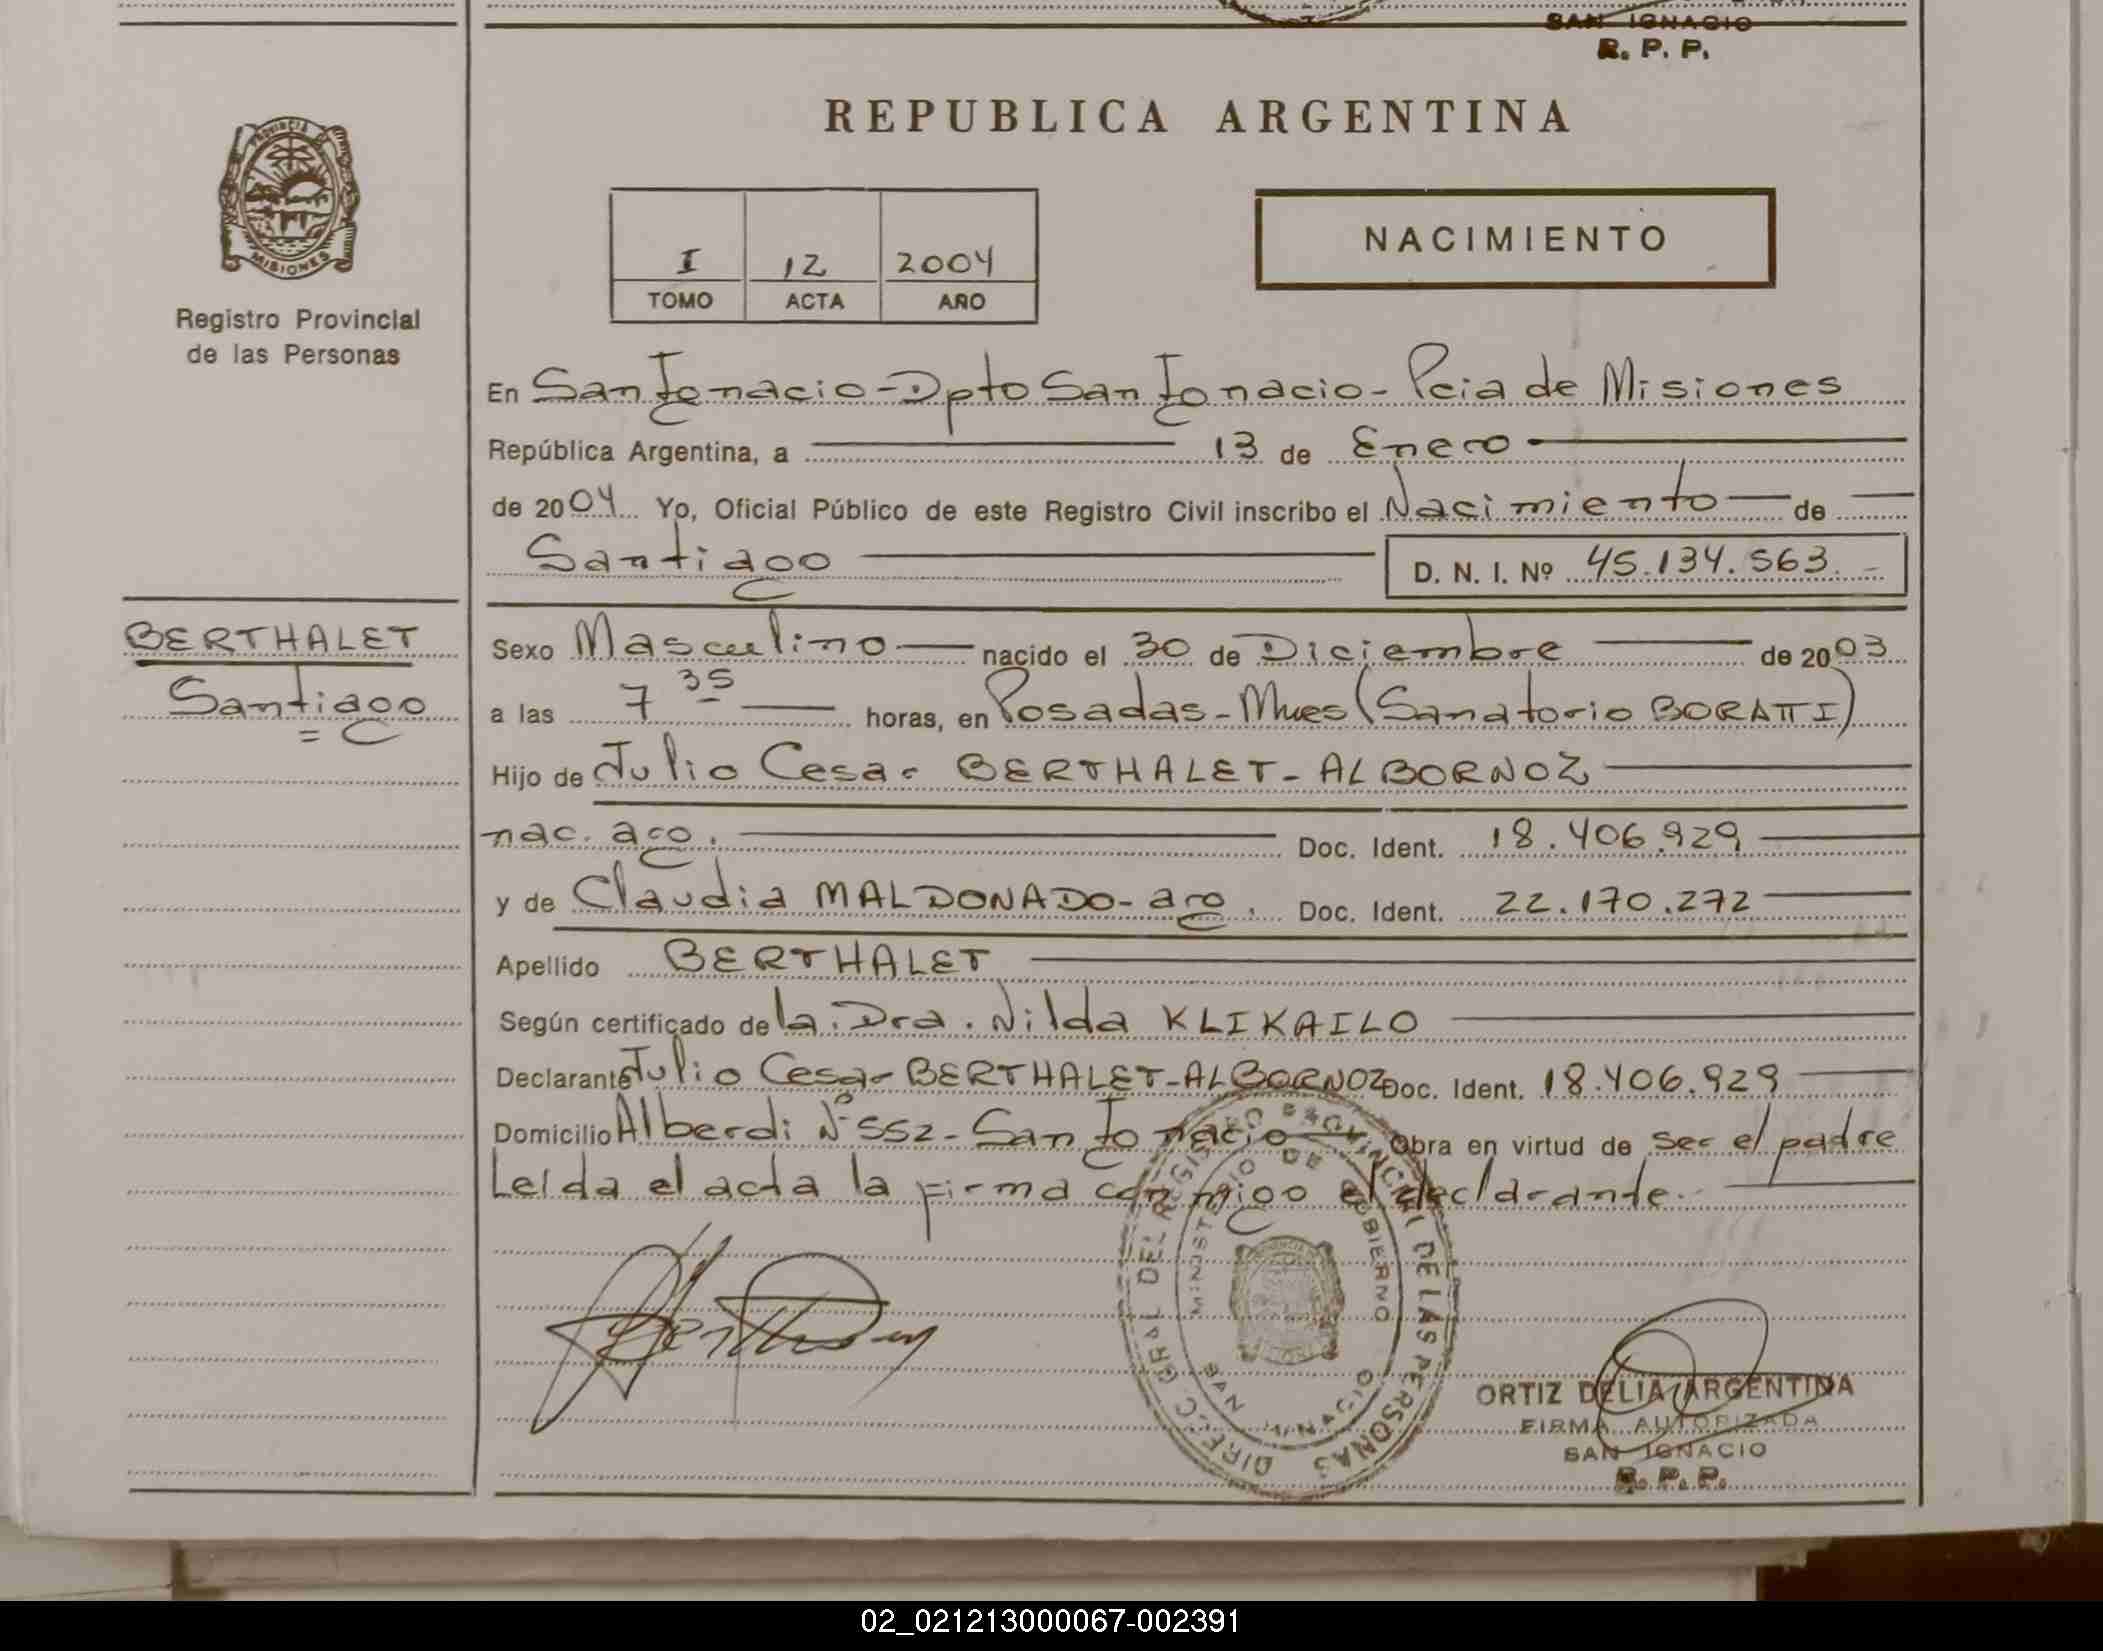 SAN IGNACIO
R. P. P.
REPUBLICA ARGENTINA
PROVINCIA DE
MISIONES
Registro Provincial
de las Personas
I 12 2004
TOMO ACTA AÑO
NACIMIENTO
En San Ignacio-Dpto San Ignacio- Pcia de Misiones
República Argentina, a 13 de Enero
de 2004 Yo, Oficial Público de este Registro Civil inscribo el Nacimiento de
Santiago D. N. I. Nº 45.134.563.-
BERTHALET
Santiago
Sexo Masculino nacido el 30 de Diciembre de 2003
a las 7 35 horas, en Posadas-Mnes (Sanatorio BORATTI)
Hijo de Julio Cesar BERTHALET-ALBORNOZ
nac. arg. Doc. Ident. 18.406.929
y de Claudia MALDONADO-arg. Doc. Ident. 22.170.272
Apellido BERTHALET
Según certificado de la Dra. Nilda KLIKAILO
Declarante Julio Cesar BERTHALET-ALBORNOZ Doc. Ident. 18.406.929
Domicilio Alberdi Nº 552-San Ignacio Obra en virtud de ser el padre
Leída el acta la firma conmigo el declarante.
DIREC. GRAL DEL REGISTRO PROVINCIAL DE LAS PERSONAS
MINISTERIO DE GOBIERNO
SAN IGNACIO
ORTIZ DELIA ARGENTINA
FIRMA AUTORIZADA
SAN IGNACIO
R. P. P.
02_021213000067-002391